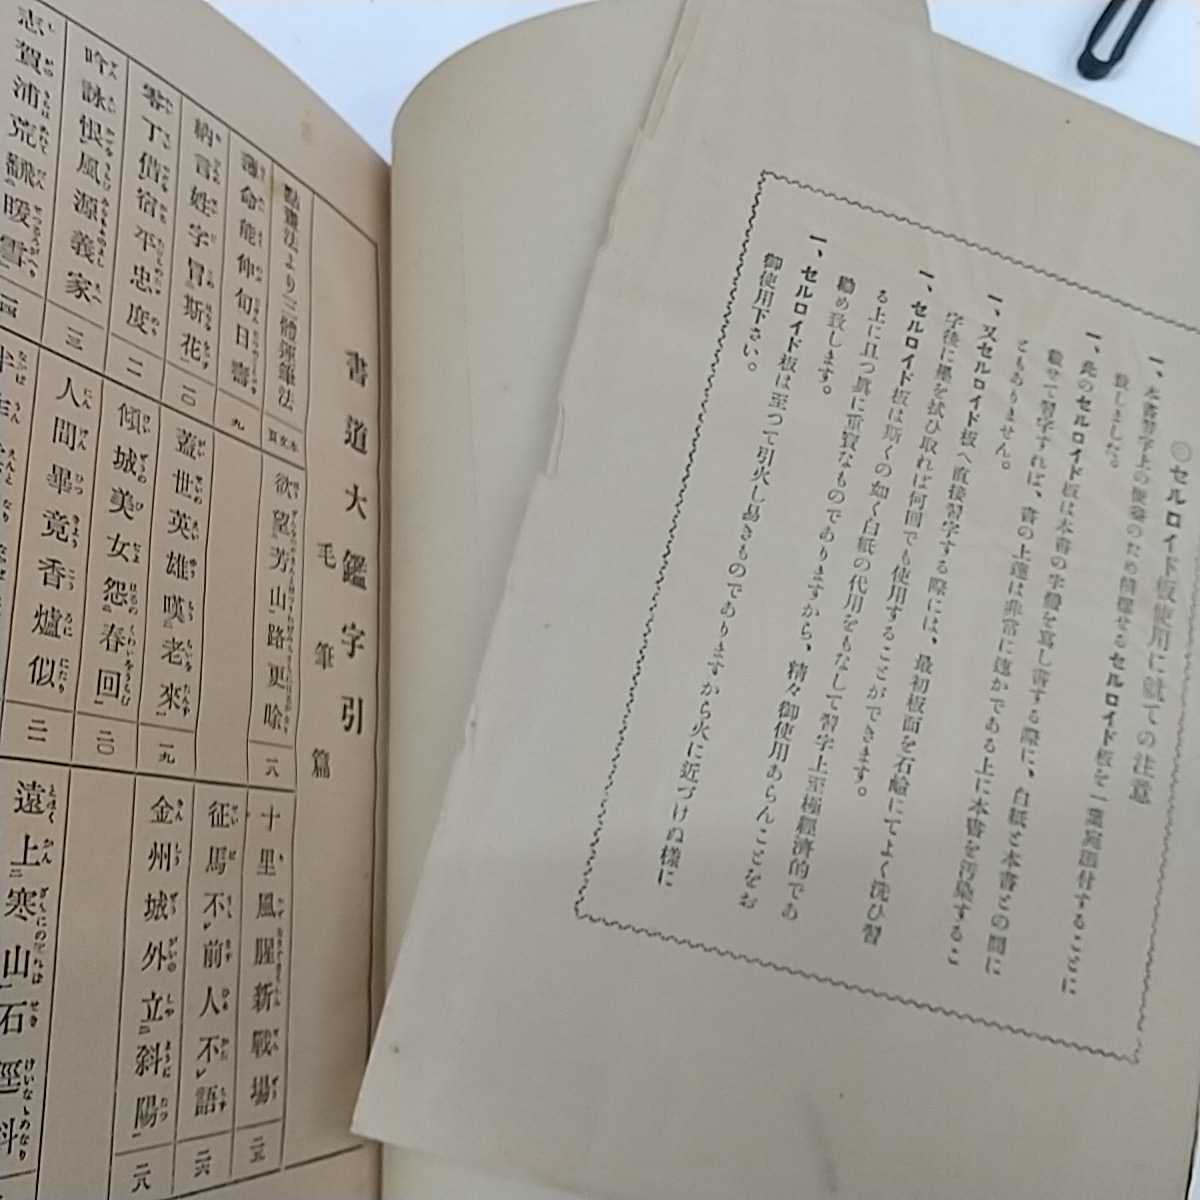 ◎セルロイド板使用に就ての注意
一、本書習字上の便益のため精選せるセルロイド板を一葉宛添付することに
致しました。
一、此のセルロイド板は本書の字體を寫し書する際に、白紙と本書との間に
載せて習字すれば、書の上達は非常に速かである上に本書を汚染するこ
ともありません。
一、又セルロイド板へ直接習字する際には、最初板面を石鹼にてよく洗ひ習
字後に墨を拭ひ取れば何回でも使用することができます。
一、セルロイド板は斯くの如く白紙の代用をもなして習字上至極經濟的であ
る上に且つ眞に重寳なものでありますから、精々御使用あらんことをお
勸め致します。
一、セルロイド板は至つて引火し易きものでありますから火に近づけぬ樣に
御使用下さい。
書道大鑑字引
毛筆篇
點畫法より三體運筆法
本文頁
薄命能伸旬日壽
九
納言姓字冒斯花
一〇
零丁借宿平忠度
一一
吟詠恨風源義家
一三
志賀浦荒翻暖雪
一四
欲望芳山路更賒
一八
蓋世英雄嘆老來
一九
傾城美女怨春回
二〇
人間畢竟香爐似
二一
十里風腥新戰場
二五
征馬不前人不語
二六
金州城外立斜陽
二八
遠上寒山石徑斜